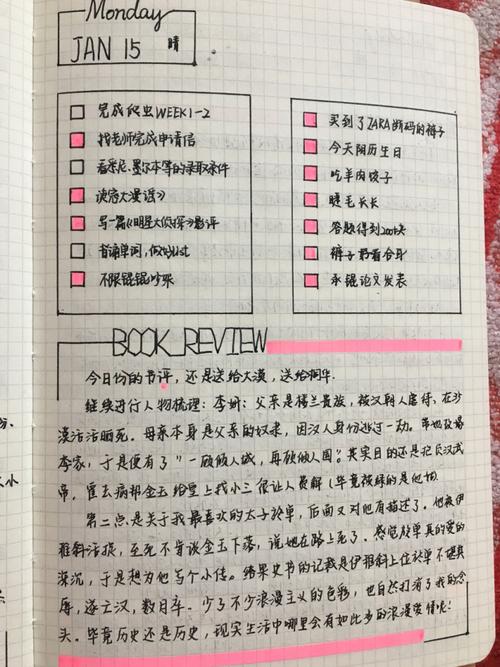 Monday
JAN 15 晴
完成爬虫WEEK1-2
找老师完成申请信
看悉尼、墨尔本等的录取条件
读完大漠谣》
写一篇《明星大侦探》影评
背诵单词，做
不跟锟锟吵架
买到了ZARA断码的裤子
今天阴历生日
吃羊肉饺子
睫毛长长
答题得到200块
裤子 合身
永锟论文发表
BOOK REVIEW
今日份的书评，还是送给大漠，送给
继续进行人物梳理：李妍：父亲是楼兰贵族，被汉朝人虐待，在沙
漠活活晒死。母亲本身是父亲的奴隶，因汉人身份逃过一劫。带她改嫁
李家，于是便有了"一顾倾人城，再顾倾人国"。其实目的还是把
帝，霍去病那金玉 小三很让人费解（毕竟被绿的是他
第二点是关于我最喜欢的太子於单，后面又对他有描述了。他被伊
稚斜活捉，至死不肯说金玉下落，说她在路上死了。感觉於单真的爱的
深沉，于是想为他写个小传。结果史书的记载是伊稚斜上位於单不堪其
辱，遂亡汉，数月卒。少了不少浪漫主义的色彩，也自然打消了我的念
头。毕竟历史还是历史，现实生活中哪里会有如此多的浪漫爱情呢！